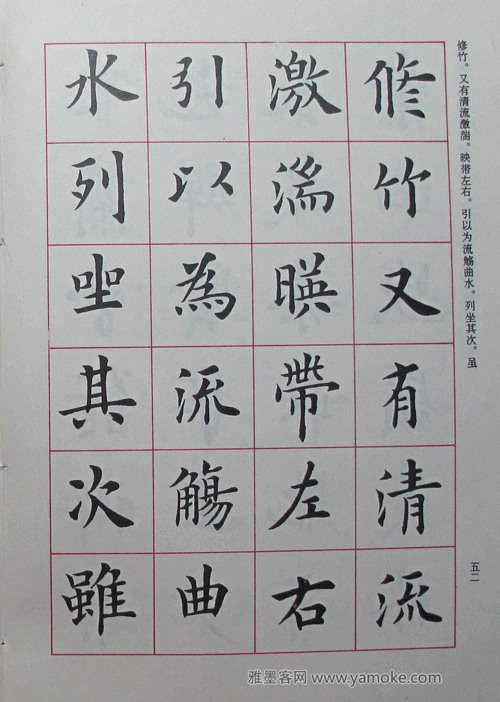 修竹又有清流
激湍暎帶左右
引以為流觴曲
水列坐其次雖
修竹。又有清流激湍。映带左右。引以为流觞曲水。列坐其次。虽
五二
雅墨客网 www.yamoke.com